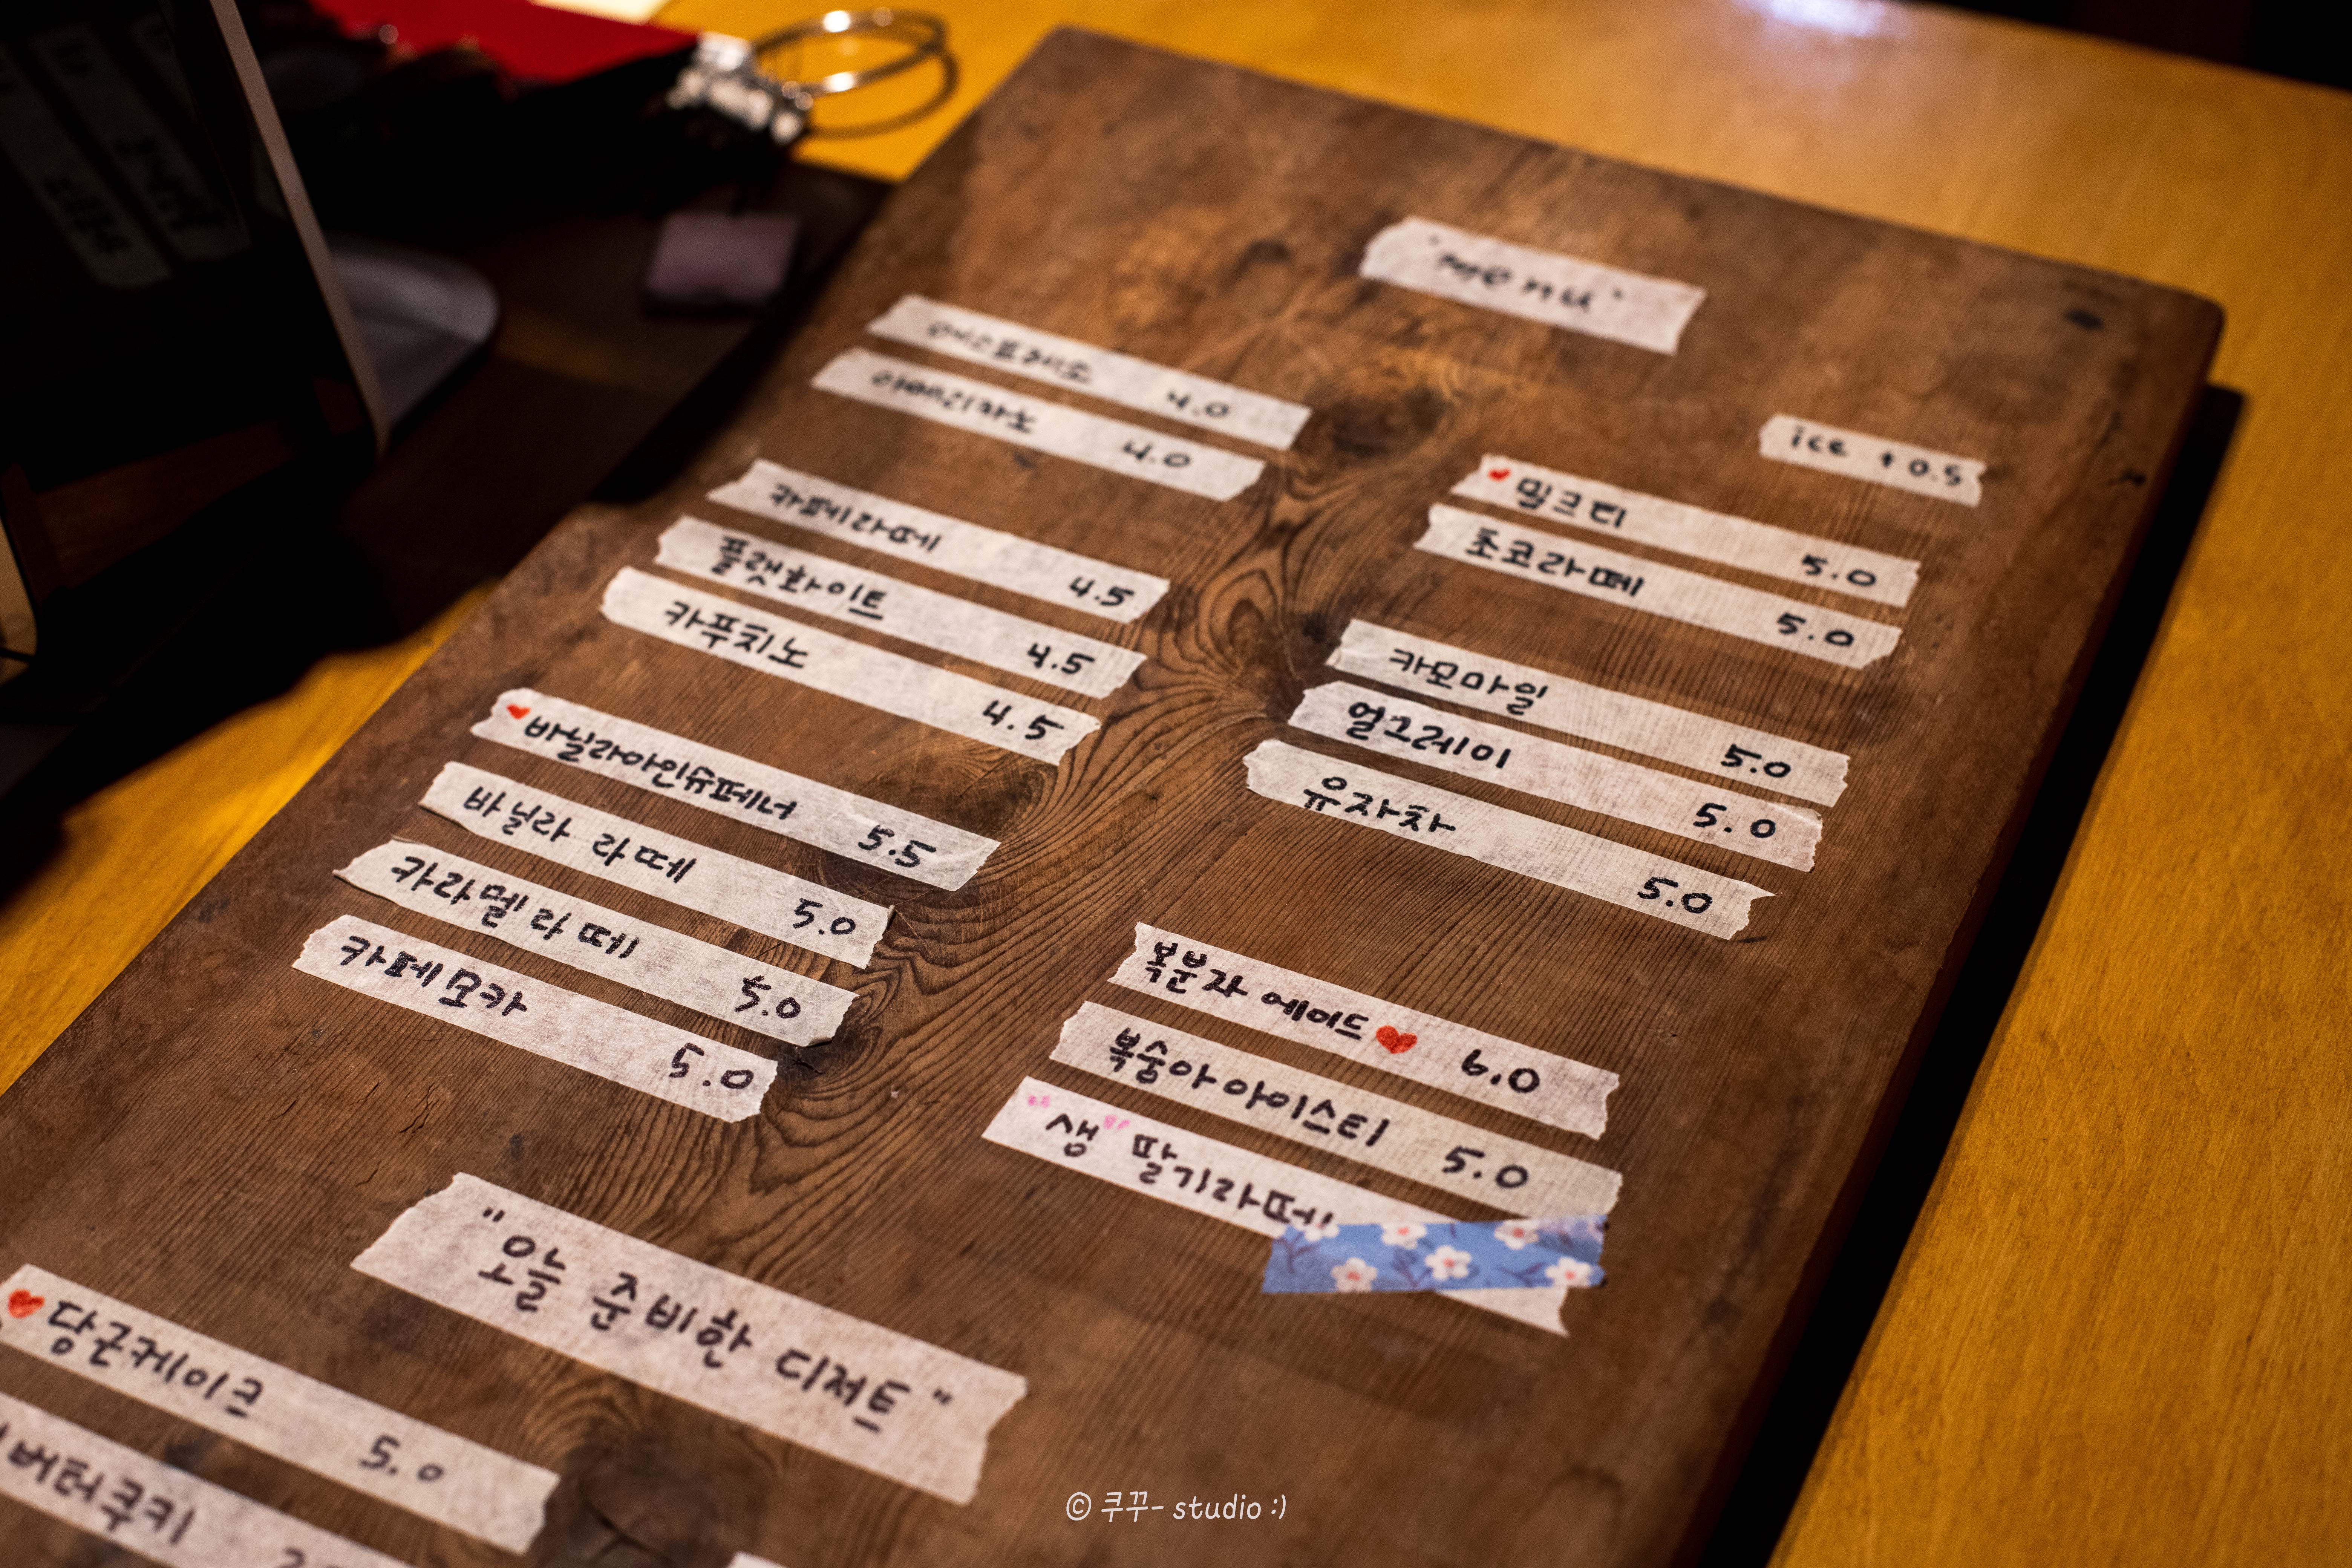 'Menu'
에스프레소 4.0
아메리카노 4.0
카페라떼 4.5
플랫화이트 4.5
카푸치노 4.5
바닐라아인슈페너 5.5
바닐라 라떼 5.0
카라멜 라떼 5.0
카페모카 5.0
ice +0.5
밀크티 5.0
초코라떼 5.0
카모마일 5.0
얼그레이 5.0
유자차 5.0
복분자 에이드 6.0
복숭아 아이스티 5.0
"생" 딸기라떼
"오늘 준비한 디져트"
당근케이크 5.0
버터쿠키
© 쿠꾸- studio :)